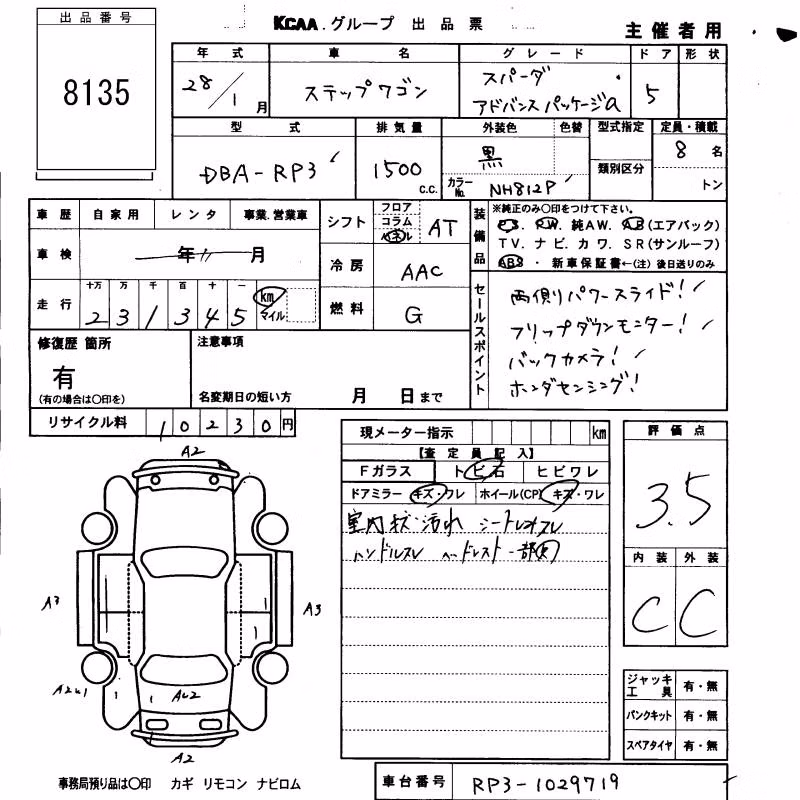 出品番号
8135
KCAA.グループ 出品票
主催者用
年式 車名 グレード ドア 形状
28/1月 ステップワゴン スパーダ アドバンスパッケージα 5
型式 排気量 外装色 色替 型式指定 定員・積載
DBA-RP3 1500 c.c. 黒 類別区分 8名
カラーNo. NH812P トン
車歴 自家用 レンタ 事業.営業車
シフト フロア コラム パネル AT
装備品 ※純正のみ〇印をつけて下さい。
PS. PW. 純AW. AB(エアバック)
TV. ナビ. カワ. SR(サンルーフ)
ABS ・ 新車保証書←(注) 後日送りのみ
車検 年 11 月
冷房 AAC
走行 十万 万 千 百 十 一
231345 km マイル
燃料 G
セールスポイント
両側パワースライド!
フリップダウンモニター!
バックカメラ!
ホンダセンシング!
修復歴 箇所
有
(有の場合は〇印を)
注意事項
名変期日の短い方 月 日まで
リサイクル料 10230円
現メーター指示 km
【査定員記入】
Fガラス トビ石 ヒビワレ
ドアミラー キズ・ワレ ホイール(CP) キズ・ワレ
室内 汚れ シート
ハンドルスレ ヘッドレスト一部
評価点
3.5
内装 外装
C C
A2
A3
A3
A2
ジャッキ工具 有・無
パンクキット 有・無
スペアタイヤ 有・無
事務局預り品は〇印 カギ リモコン ナビロム
車台番号 RP3-1029719